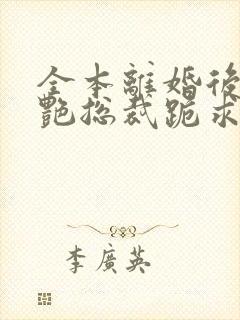 全本離婚後
艷总裁跪求
李廣英